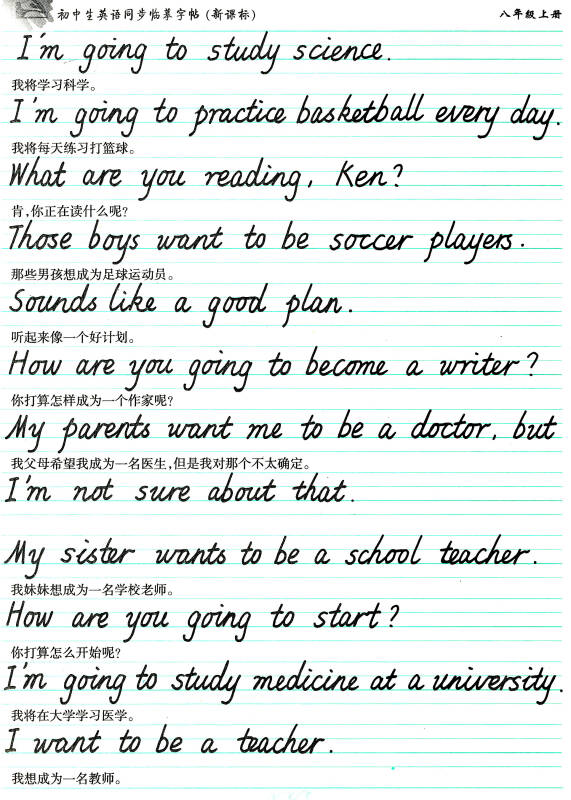 初中生英语同步临摹字帖(新课标) 八年级上册
I'm going to study science.
我将学习科学。
I'm going to practice basketball every day.
我将每天练习打篮球。
What are you reading, Ken?
肯,你正在读什么呢?
Those boys want to be soccer players.
那些男孩想成为足球运动员。
Sounds like a good plan.
听起来像一个好计划。
How are you going to become a writer?
你打算怎样成为一个作家呢?
My parents want me to be a doctor, but
我父母希望我成为一名医生,但是我对那个不太确定。
I'm not sure about that.
My sister wants to be a school teacher.
我妹妹想成为一名学校老师。
How are you going to start?
你打算怎么开始呢?
I'm going to study medicine at a university.
我将在大学学习医学。
I want to be a teacher.
我想成为一名教师。